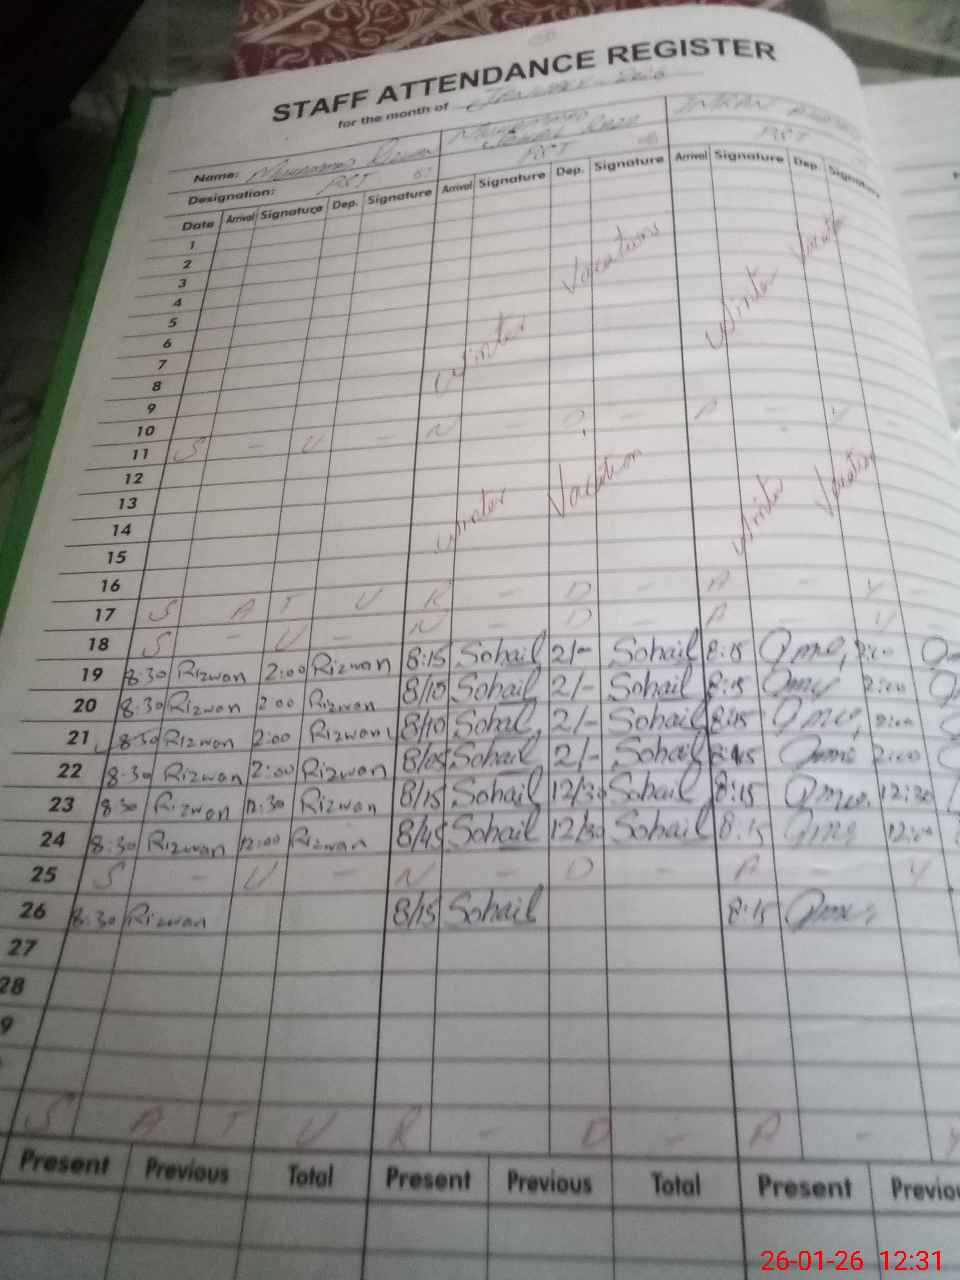 STAFF ATTENDANCE REGISTER
for the month of
Name: Muhammad Rizwan Muhammad Sohail Raza Imran
Designation: PST PST PST
Date Arrival Signature Dep. Signature Arrival Signature Dep. Signature Arrival Signature Dep. Signature
1
2
3
4
5
6
7
8
9
10
Winter Vacations Winter
11 S - U - N - D - A - Y -
12
13
14
15
Winter Vacation Winter Vacation
16
17 S A T U R - D - A - Y -
18 S - U - N - D - A - Y
19 8:30 Rizwan 2:00 Rizwan 8:15 Sohail 2/- Sohail 8:15 2:00
20 8:30 Rizwan 2:00 Rizwan 8/10 Sohail 2/- Sohail 8:15 2:00
21 8:30 Rizwan 2:00 Rizwan 8/10 Sohail 2/- Sohail 8:15 2:00
22 8:30 Rizwan 2:00 Rizwan 8/05 Sohail 2/- Sohail 2:00
23 8:30 Rizwan 12:30 Rizwan 8/15 Sohail 12/30 Sohail 8:15 12:30
24 8:30 Rizwan 12:00 Rizwan 8/45 Sohail 12/30 Sohail 8:15 12:00
25 S - U - N - D - A - Y
26 8:30 Rizwan 8/15 Sohail 8:15
27
28
9
S A T U R - D - A - Y
Present Previous Total Present Previous Total Present Previou
26-01-26 12:31